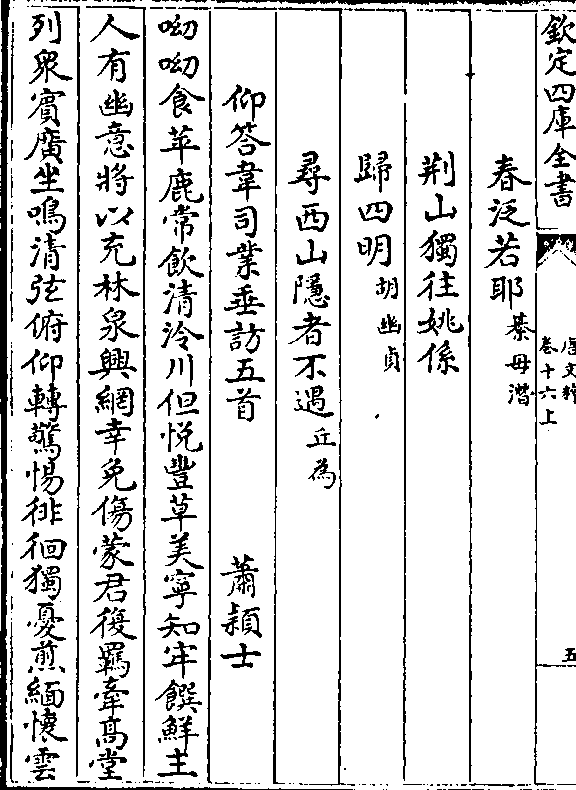 欽定四庫全書
唐文粹
卷十六上
五
春泛若耶 綦毋潛
荆山獨往姚係
歸四明 胡幽貞
尋西山隱者不遇 丘為
仰答韋司業垂訪五首 蕭頴士
呦呦食苹鹿常飲清泠川但悦豐草美寧知牢饌鮮主
人有幽意將以充林泉興網幸免傷蒙君復羈牽高堂
列衆賓廣坐鳴清弦俯仰轉驚惕徘徊獨憂煎緬懷雲